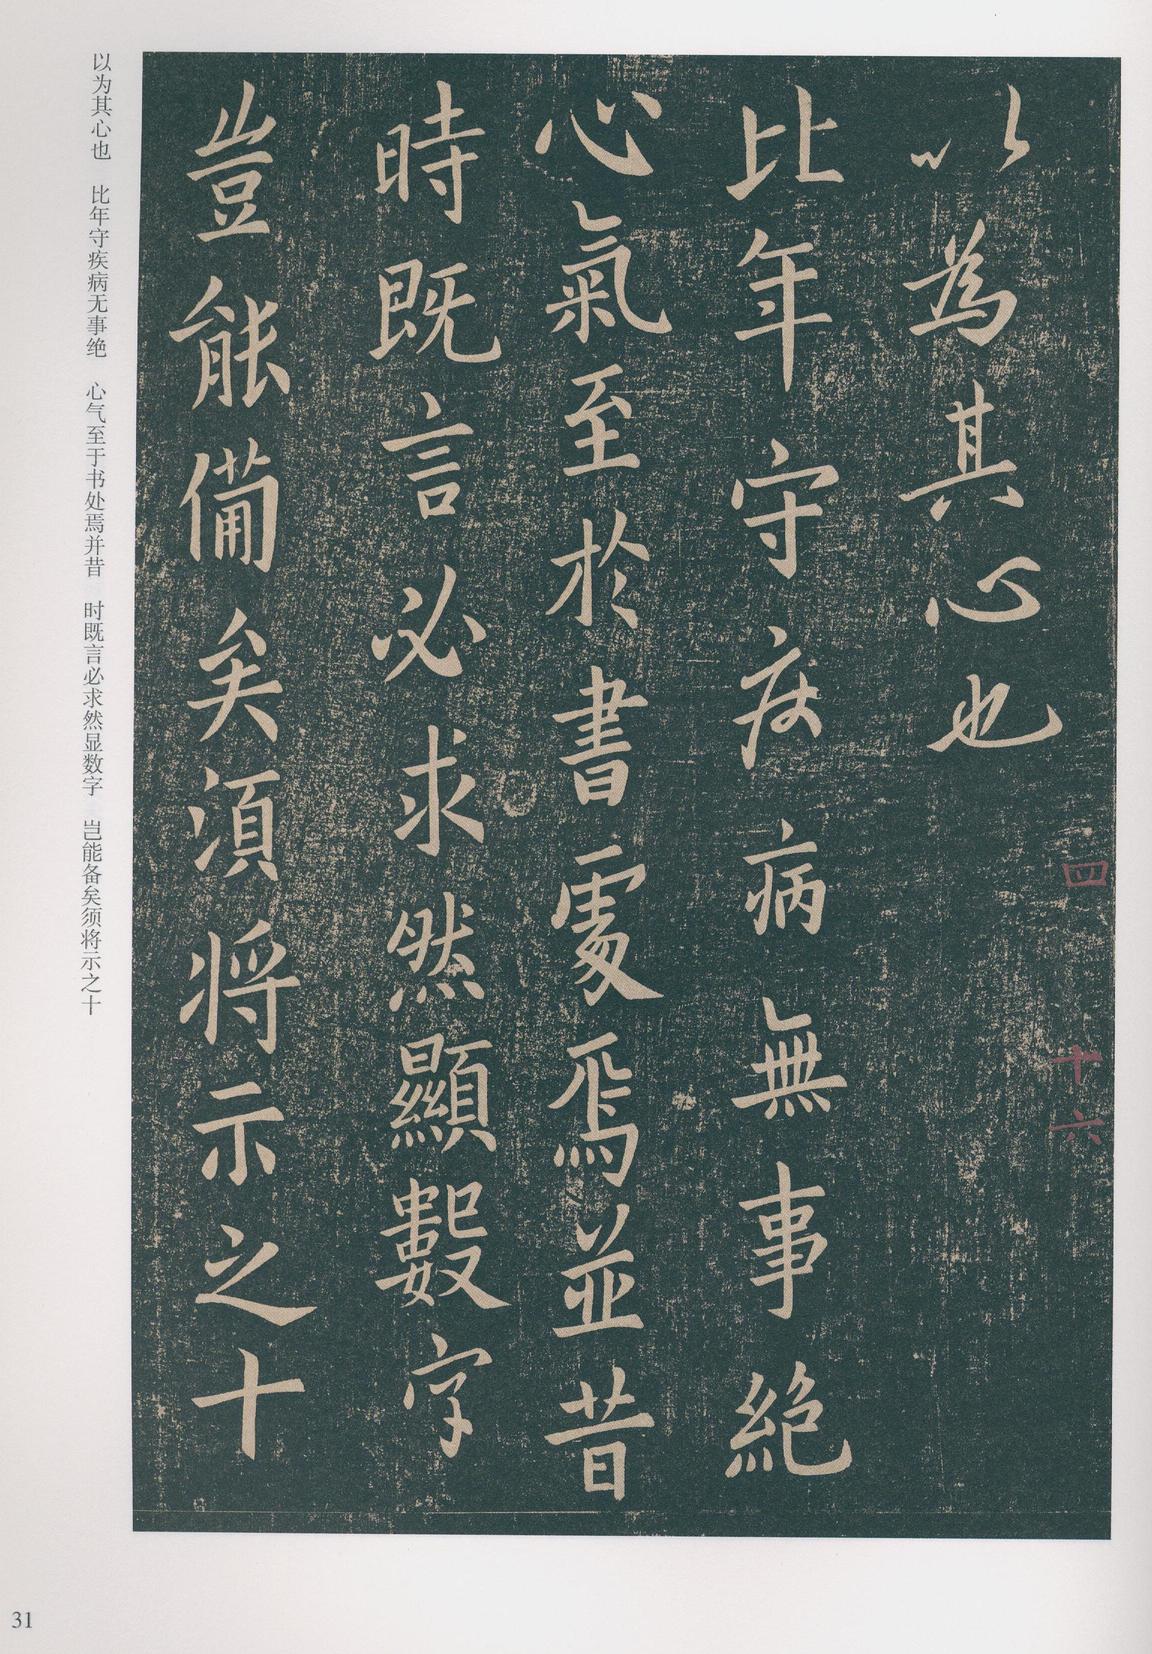 以為其心也
比年守疾病無事絕
心氣至於書處焉並昔
時既言必求然顯數字
豈能備矣須將示之十
四 十六
以为其心也 比年守疾病无事绝 心气至于书处焉并昔 时既言必求然显数字 岂能备矣须将示之十
31